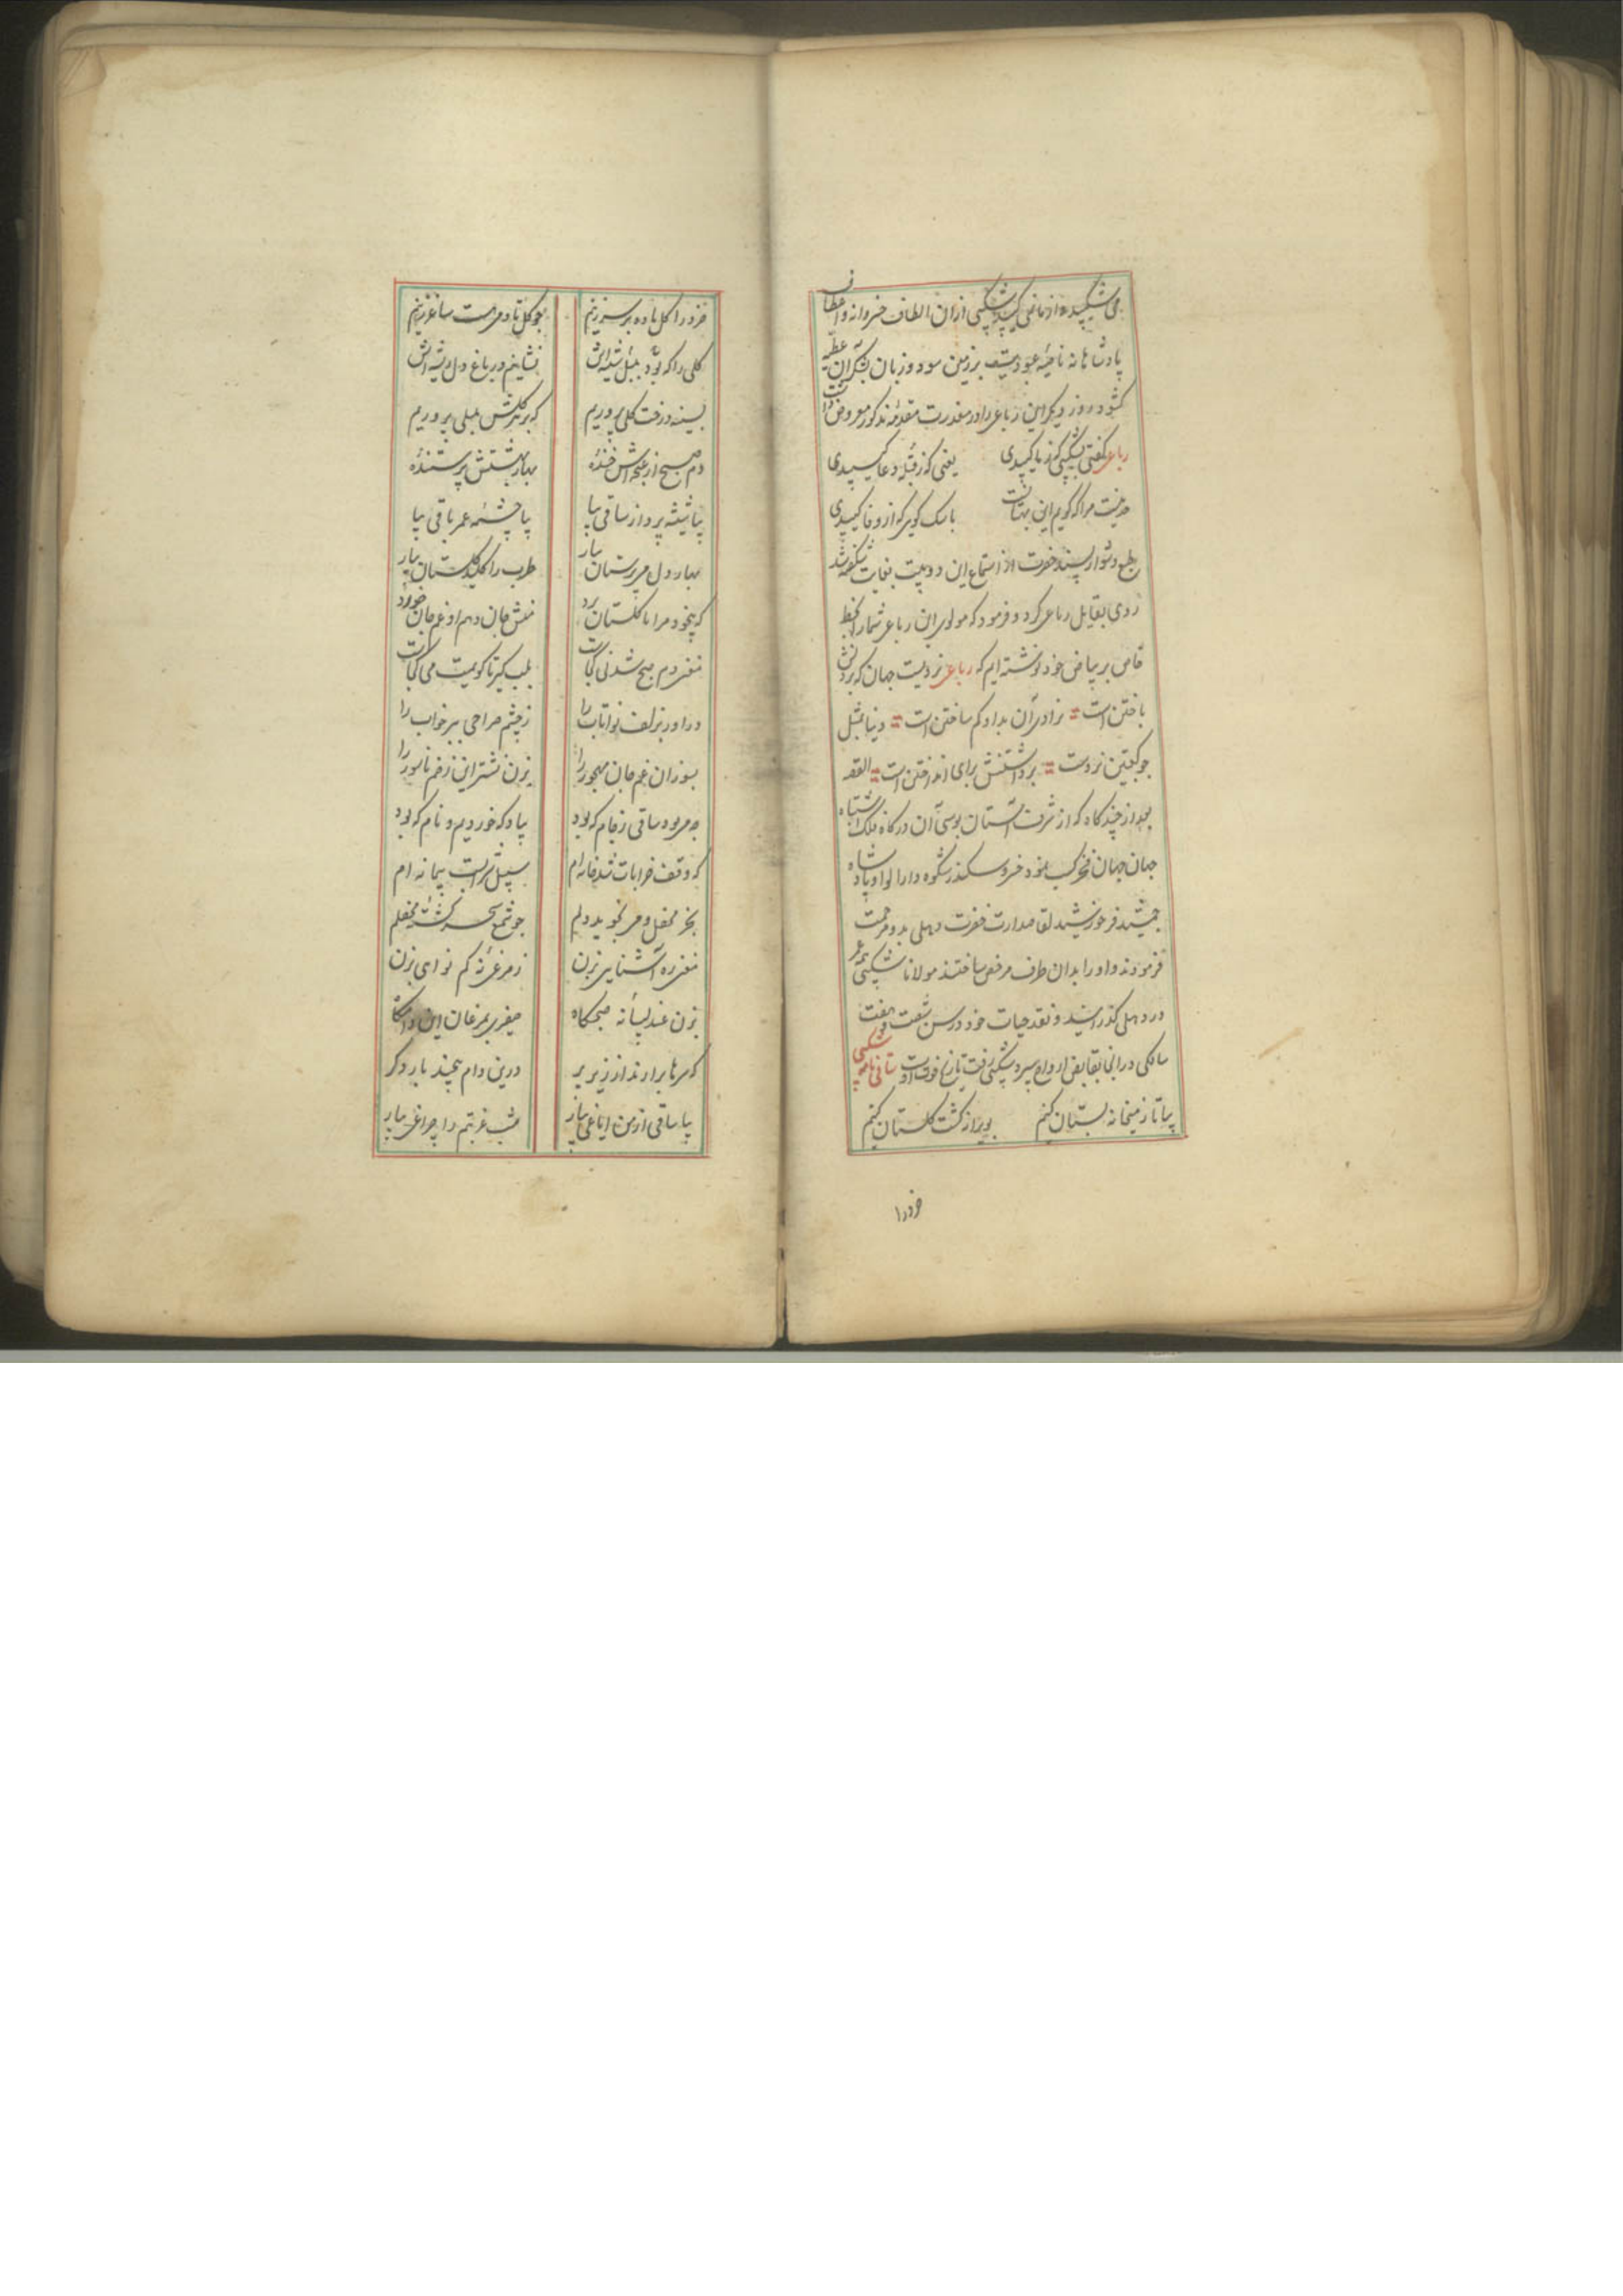 می شکیبید و از ما نمی کیبید شکیبی ازان الطاف خسروانه و اعطاف
پادشاهانه ناصیهٔ عبودیت بر زمین سود و زبان بشکر آن عطیه
کشود روز دیکر این رباعی را در معذرت مقدمه مذکور معروض داشت
رباعی کفتی شکیبی که ز ما کیبیدی یعنی که ز قبلهٔ دعا کیبیدی
حد نیست مرا که کویم این بهتانست با سک کویی که از وفا کیبیدی
طبع دشوار پسند حضرت از استماع این دو بیت بغایت شکفته شد
روی بقایل رباعی کرد و فرمود که مولوی این رباعی شما را بخط
خاص بر بیاض خود نوشته ایم که رباعی نردیست جهان که بردنش
باختن است = نرادی آن بداو کم ساختن است = دنیا بمثل
چو کعبتین نردست = برداشتنش برای انداختن است = القصه
بعد از چندکاه که از شرف آستان بوسی آن درکاه ملک اشتباه
جهان جهان فخر کسب نمود خسرو سکندر شکوه دارا لوا و پادشاه
جمشید فر خورشید لقا صدارت حضرت دهلی بدو مرحمت
فرمودند و او را بدان طرف مرخص ساختند مولانا شکیبی عمر
در دهلی کذرانید و نقد حیات خود در سن شصت و هفت
سالکی در انجا بقابض ارواح سپرد شکیبی رفت تاریخ فوت اوست ساقی نامه شکیبی
بیا تا ز میخانه بستان کنیم بویرانه کشت کلستان کنیم
خرد را
خرد را کل باده بر سر زنیم چو کل تا دم مست ساغر زنیم
کلی را که بود بلبل شیداش نشانیم در باغ دل ریشه اش
بسینه درخت کلی پروریم که بر هر کلش بلبلی پروریم
دم صبح از غنچه اش خندهٔ بهار بهشتش پرستندهٔ
بیا شیشه پرداز ساقی بیا بیا چشمه عمر باقی بیا
بهار دل می پرستان بیار طرب را کلید کلستان بیار
که بیخود مرا تا کلستان برد منش جان دهم او غم جان خورد
مغنی دم صبح شد نی کجاست بلب کیر تا کویمت می کجاست
در اور بزلف نوا تاب را ز چشم صراحی ببر خواب را
بسوزان غم جان مهجور را بزن نشتر این زخم ناسور را
چه می بود ساقی ز جام که بود بیاد که خوردیم و نام که بود
که وقف خرابات شد خانه ام سبیل شرابست پیمانه ام
بجز محفل و می نجوید دلم چو شمع سحر کشته محفلم
مغنی ره آشنایی بزن ز مرغی نه کم نوای بزن
بزن عندلیبانه صبحکاه صفیری بمرغان این دامکاه
که سرها برارند از زیر پر درین دام پیچند بار دکر
بیا ساقی از من ایاغی بیار شب غربتم را چراغی بیار